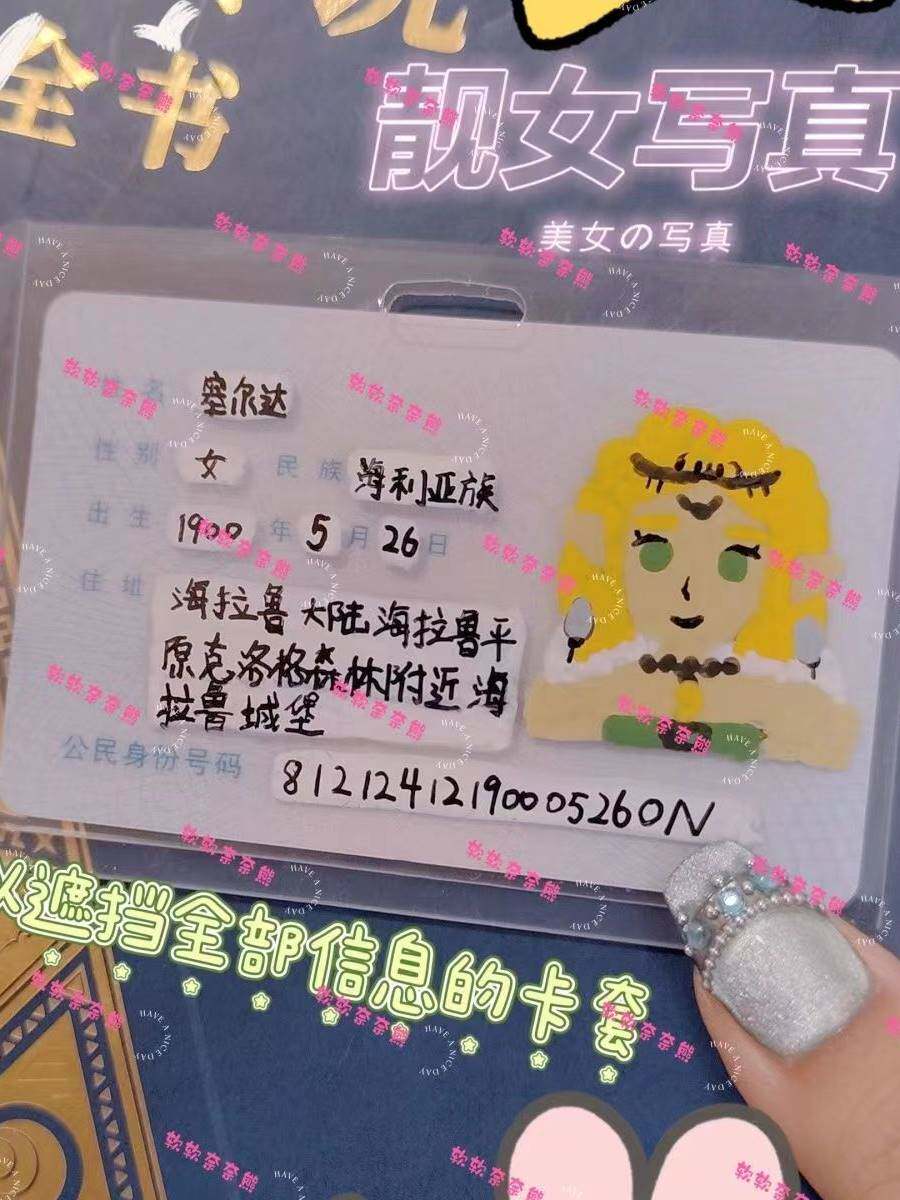 全书
靓女写真
美女の写真
姓名 塞尔达
性别 女 民族 海利亚族
出生 1900 年 5 月 26 日
住址 海拉鲁大陆海拉鲁平
原克洛格森林附近海
拉鲁城堡
公民身份号码 81212412190005260N
遮挡全部信息的卡套
软软奈奈熊
HAVE A NICE DAY